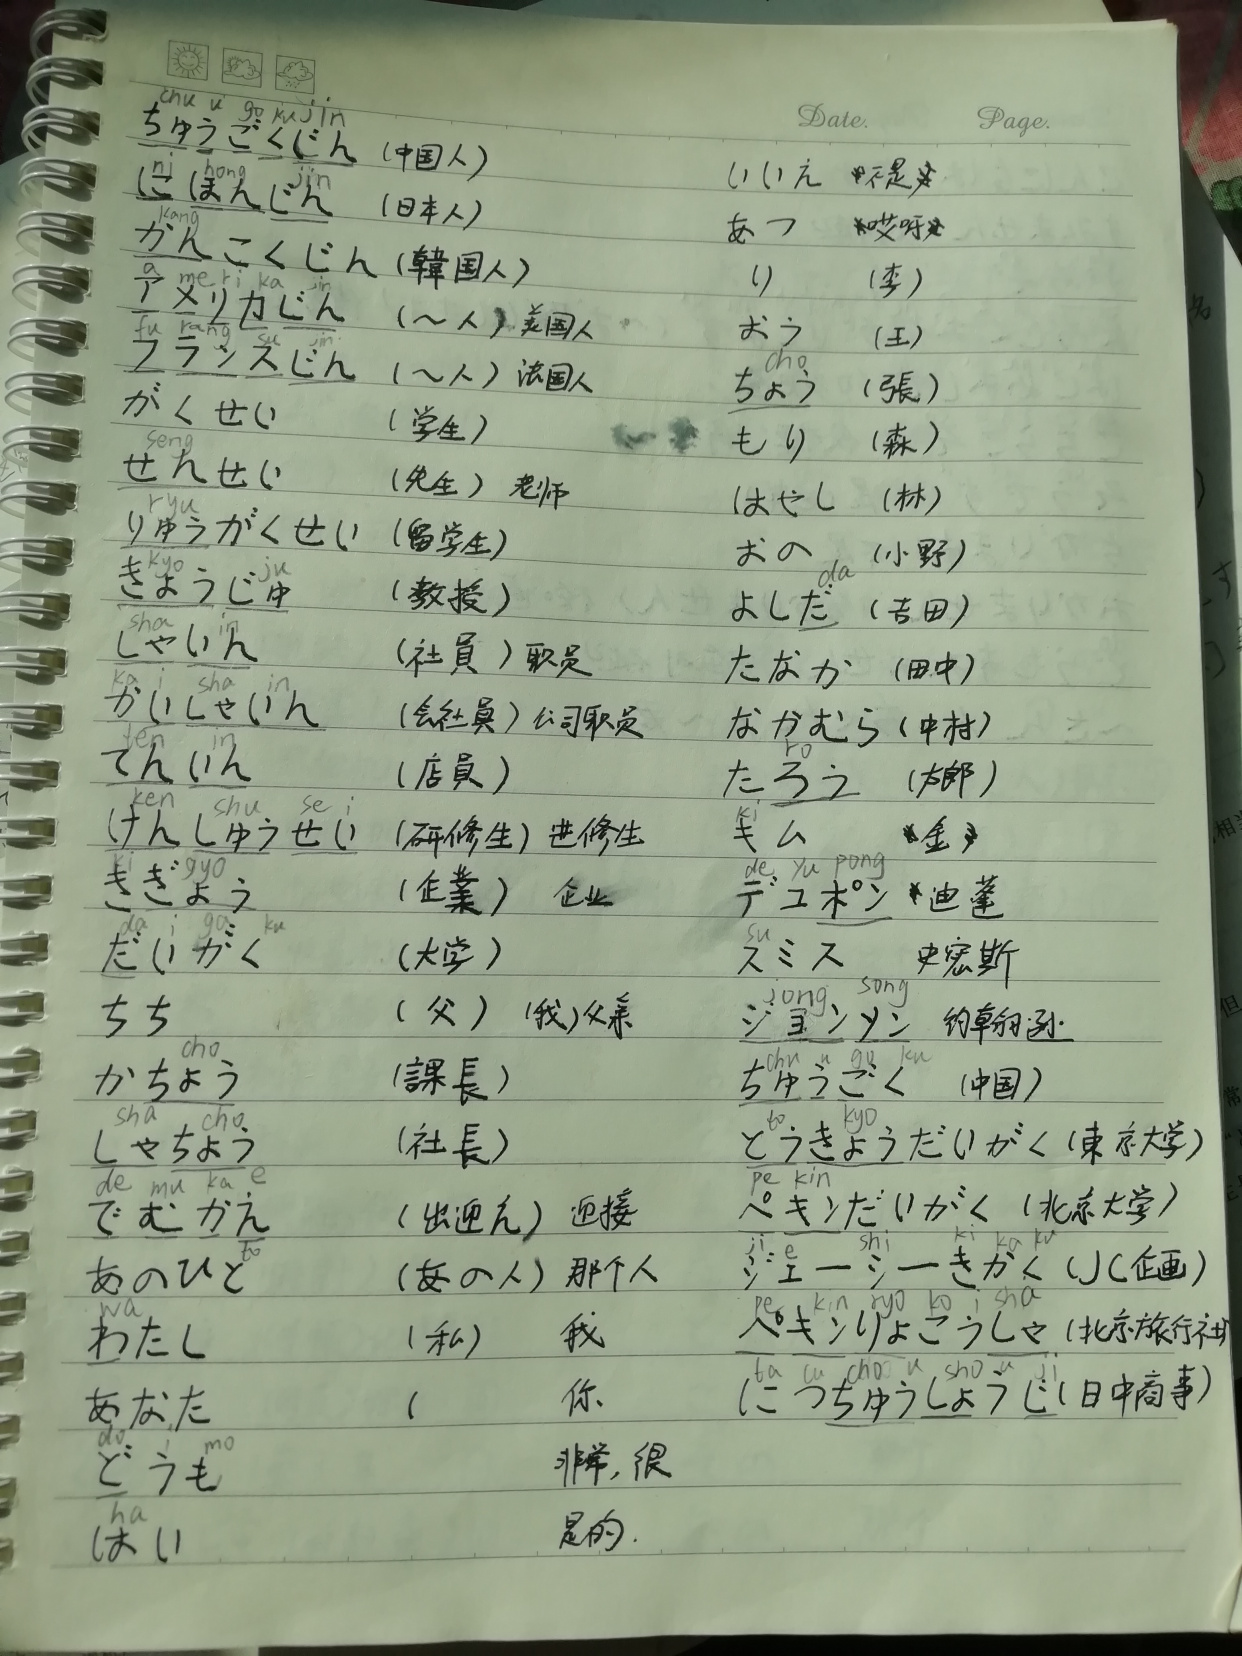 Date. Page.
chu u go ku jin
ちゅうごくじん (中国人)
ni hong jin
にほんじん (日本人)
kang
かんこくじん (韓国人)
a me ri ka jin
アメリカじん (～人) 美国人
fu rang su jin
フランスじん (～人) 法国人
がくせい (学生)
seng
せんせい (先生) 老师
ryu
りゅうがくせい (留学生)
kyo ju
きょうじゅ (教授)
sha in
しゃいん (社員) 职员
ka i sha in
かいしゃいん (会社員) 公司职员
ten in
てんいん (店員)
ken shu se i
けんしゅうせい (研修生) 进修生
ki gyo
きぎょう (企業) 企业
da i ga ku
だいがく (大学)
ちち (父) (我)父亲
cho
かちょう (課長)
sha cho
しゃちょう (社長)
de mu ka e
でむかえ (出迎え) 迎接
to
あのひと (あの人) 那个人
wa
わたし (私) 我
あなた ( 你
do i mo
どうも 非常,很
ha
はい 是的.
いいえ *不是*
あっ *哎呀*
り (李)
おう (王)
cho
ちょう (張)
もり (森)
はやし (林)
おの (小野)
da
よしだ (吉田)
たなか (田中)
なかむら (中村)
ro
たろう (太郎)
ki
キム *金*
de yu pong
デュポン *迪蓬
su
スミス 史密斯
jong song
ジョンソン 约翰逊
chu u go ku
ちゅうごく (中国)
to kyo
とうきょうだいがく (東京大学)
pe kin
ペキンだいがく (北京大学)
ji e shi ki ka ku
ジェーシーきかく (JC企画)
pe kin ryo ko i sha
ペキンりょこうしゃ (北京旅行社)
ta cu choo u sho u ji
にっちゅうしょうじ (日中商事)